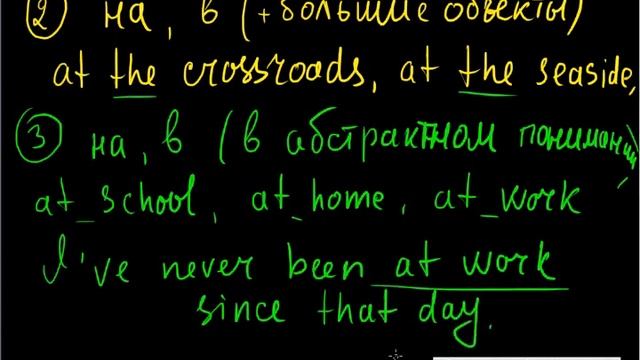 ② на, в (+большие объекты)
at the crossroads, at the seaside,
③ на, в (в абстрактном понимании)
at_school, at_home, at_work
I've never been at work
since that day.